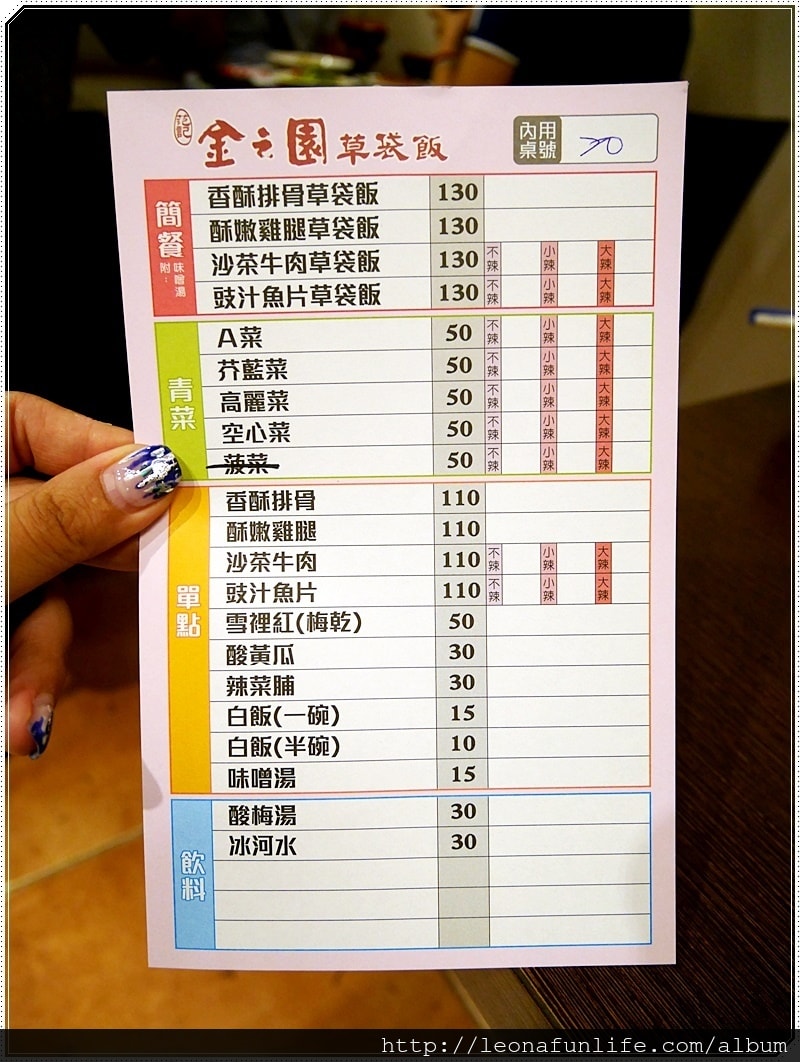 范記
金之園草袋飯
內用桌號 20
簡餐
附:味噌湯
香酥排骨草袋飯 130
酥嫩雞腿草袋飯 130
沙茶牛肉草袋飯 130 不辣 小辣 大辣
豉汁魚片草袋飯 130 不辣 小辣 大辣
青菜
A菜 50 不辣 小辣 大辣
芥藍菜 50 不辣 小辣 大辣
高麗菜 50 不辣 小辣 大辣
空心菜 50 不辣 小辣 大辣
菠菜 50 不辣 小辣 大辣
單點
香酥排骨 110
酥嫩雞腿 110
沙茶牛肉 110 不辣 小辣 大辣
豉汁魚片 110 不辣 小辣 大辣
雪裡紅(梅乾) 50
酸黃瓜 30
辣菜脯 30
白飯(一碗) 15
白飯(半碗) 10
味噌湯 15
飲料
酸梅湯 30
冰河水 30
http://leonafunlife.com/album